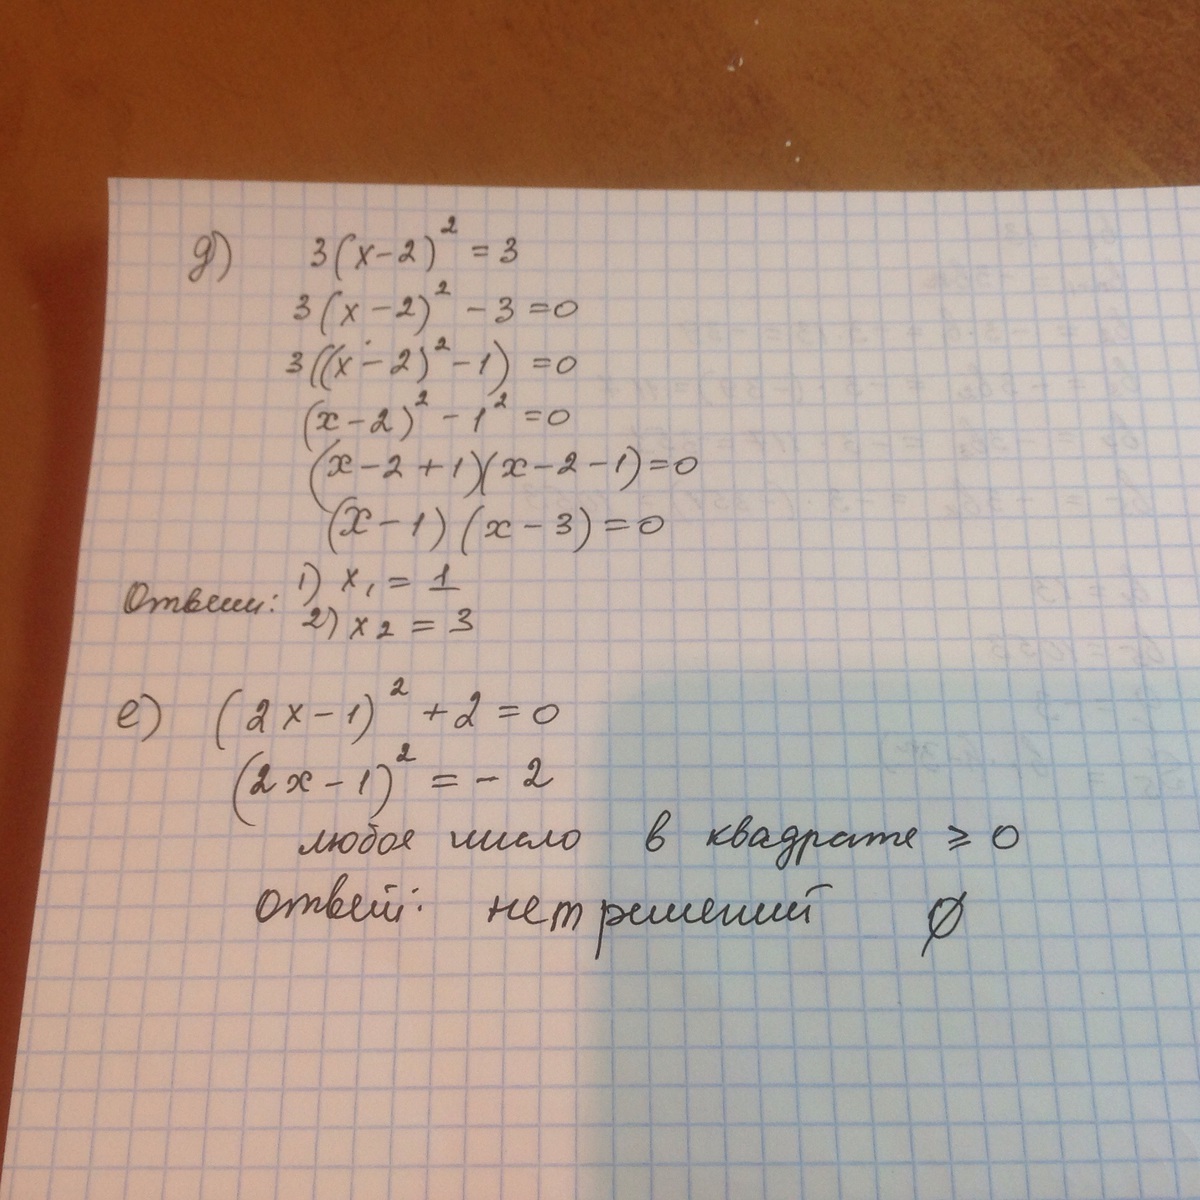 д) 3(x-2)² = 3
3(x-2)² - 3 = 0
3((x-2)² - 1) = 0
(x-2)² - 1² = 0
(x-2+1)(x-2-1) = 0
(x-1)(x-3) = 0
Ответ: 1) x₁ = 1
2) x₂ = 3
е) (2x-1)² + 2 = 0
(2x-1)² = -2
любое число в квадрате ⩾ 0
ответ: нет решений ∅